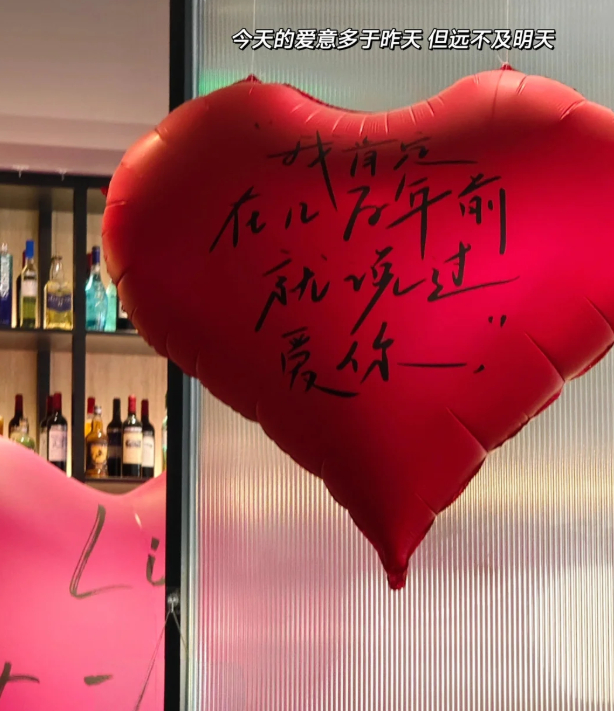 今天的爱意多于昨天 但远不及明天
“我肯定
在几百年前
就说过
爱你—，”
Li